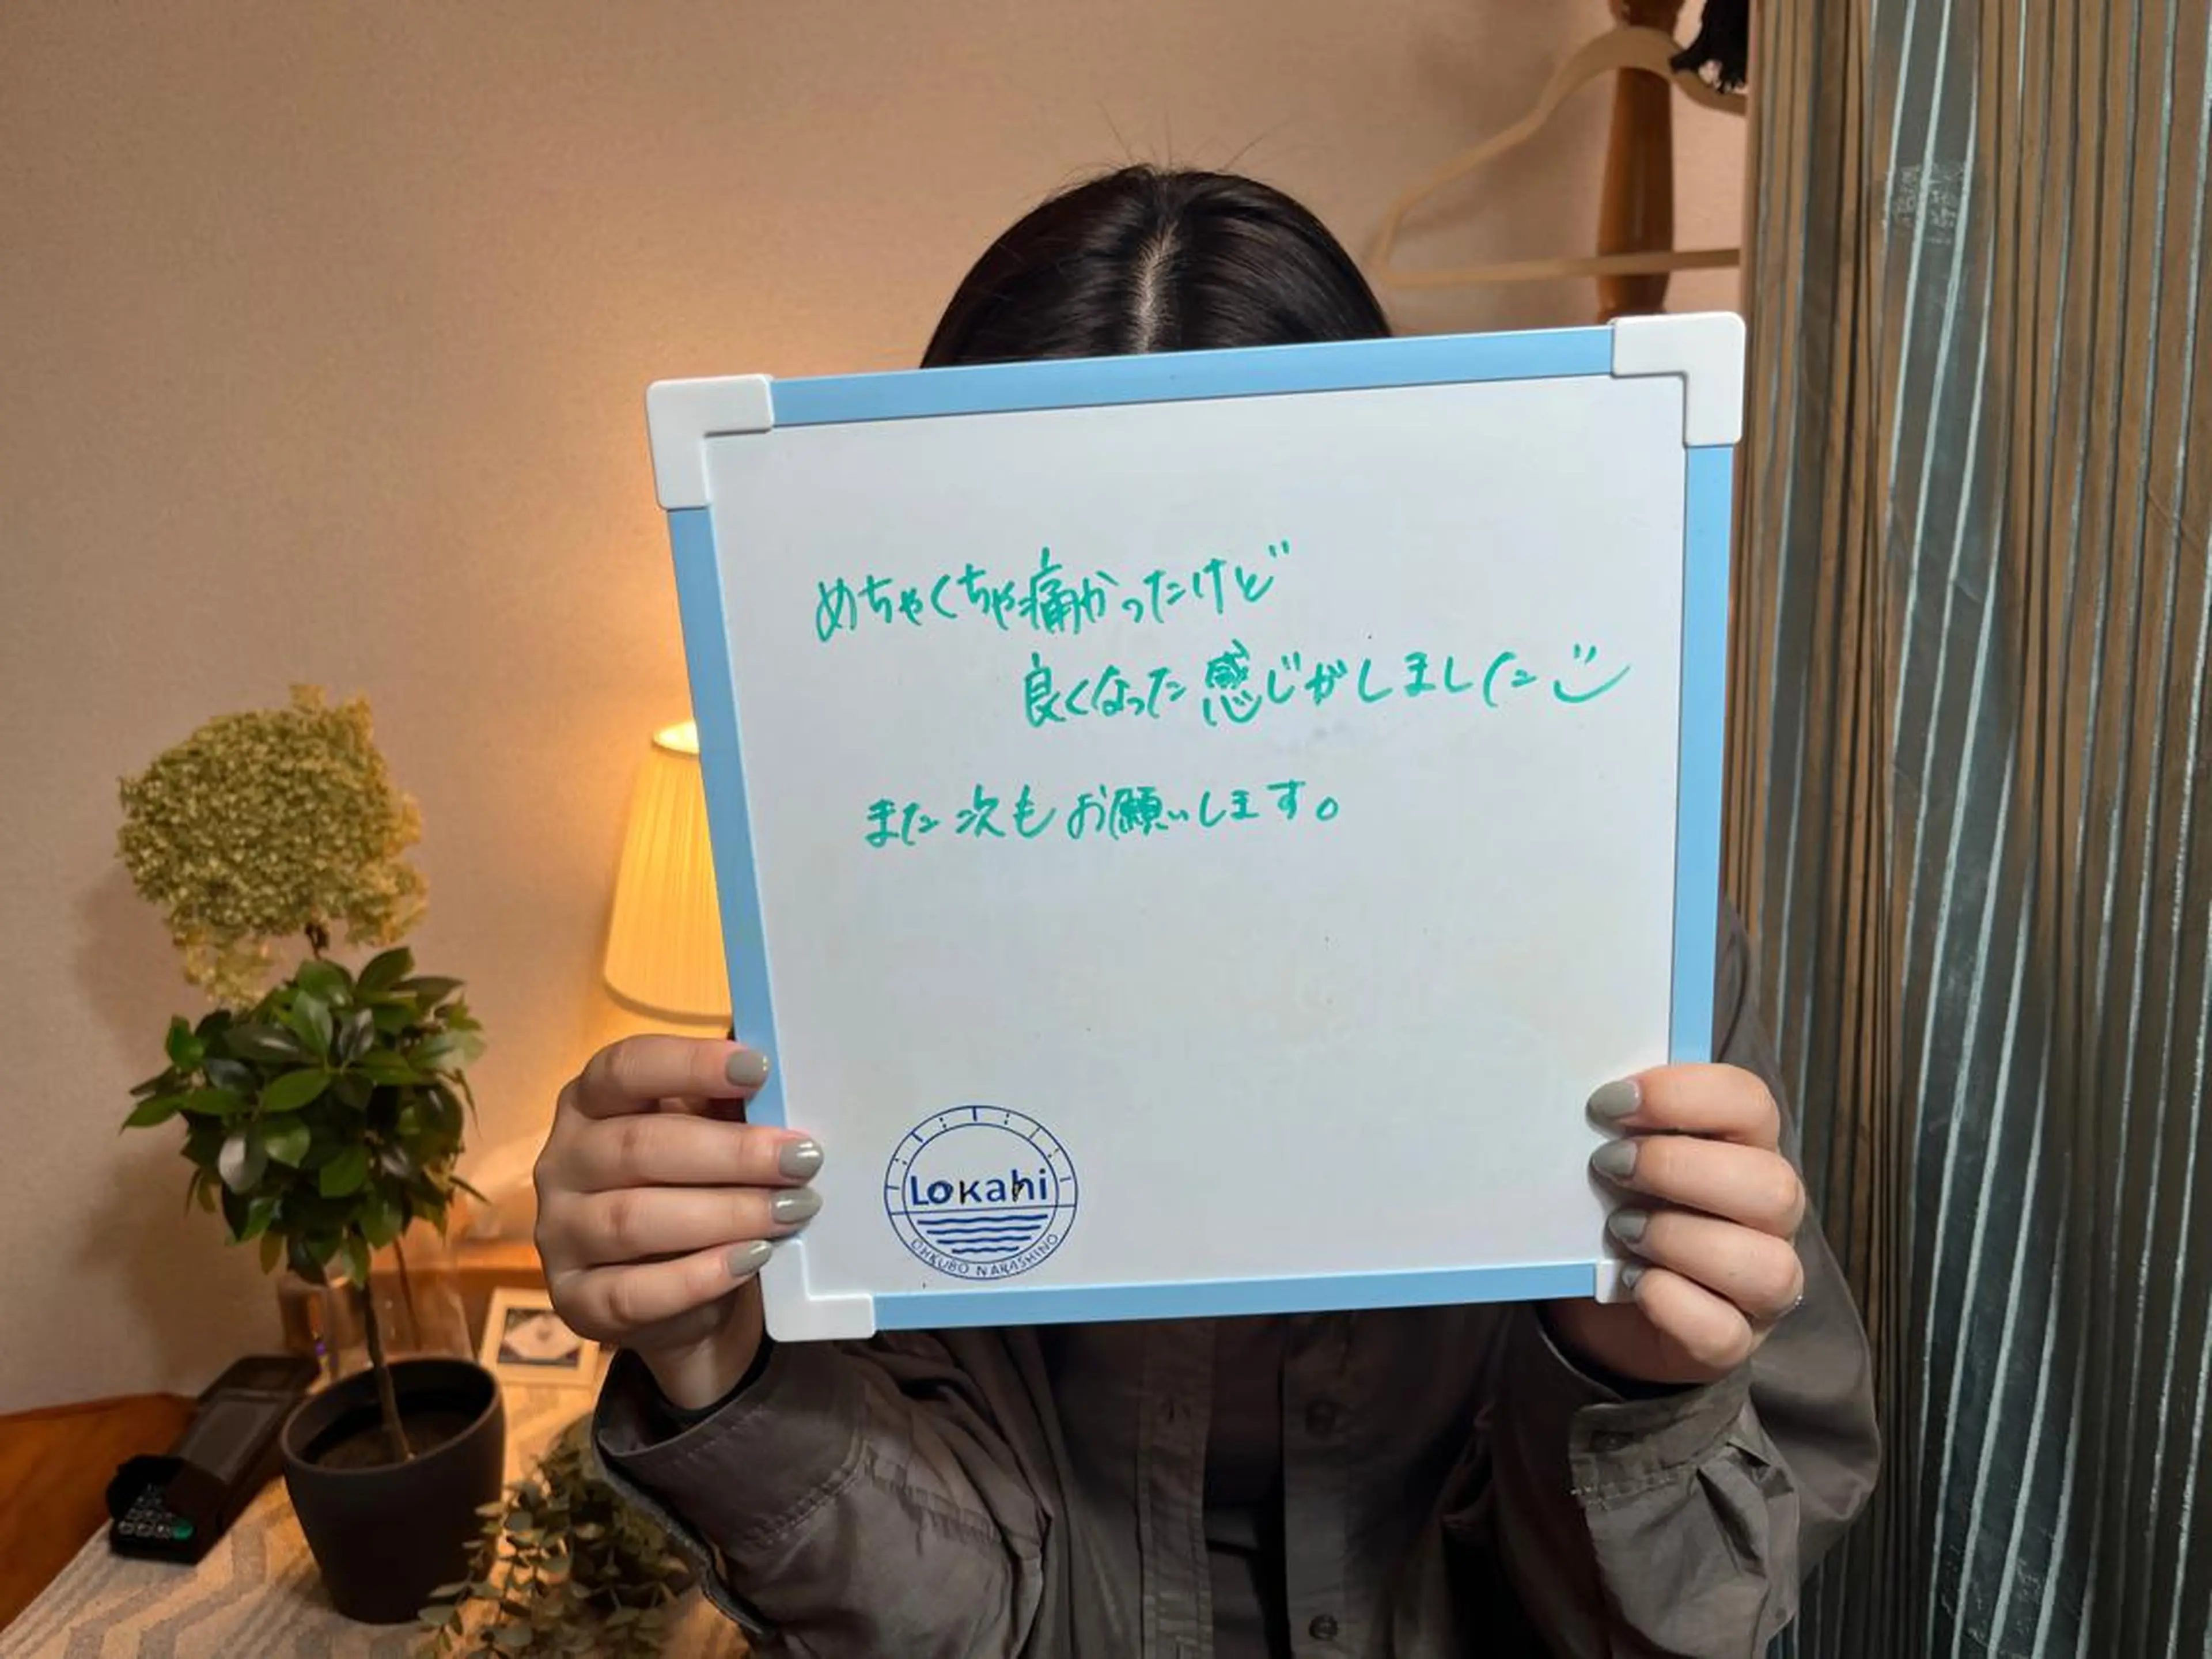 めちゃくちゃ痛かったけど
良くなった感じがしました
また次もお願いします。
Lokahi
OHKUBO NARASHINO